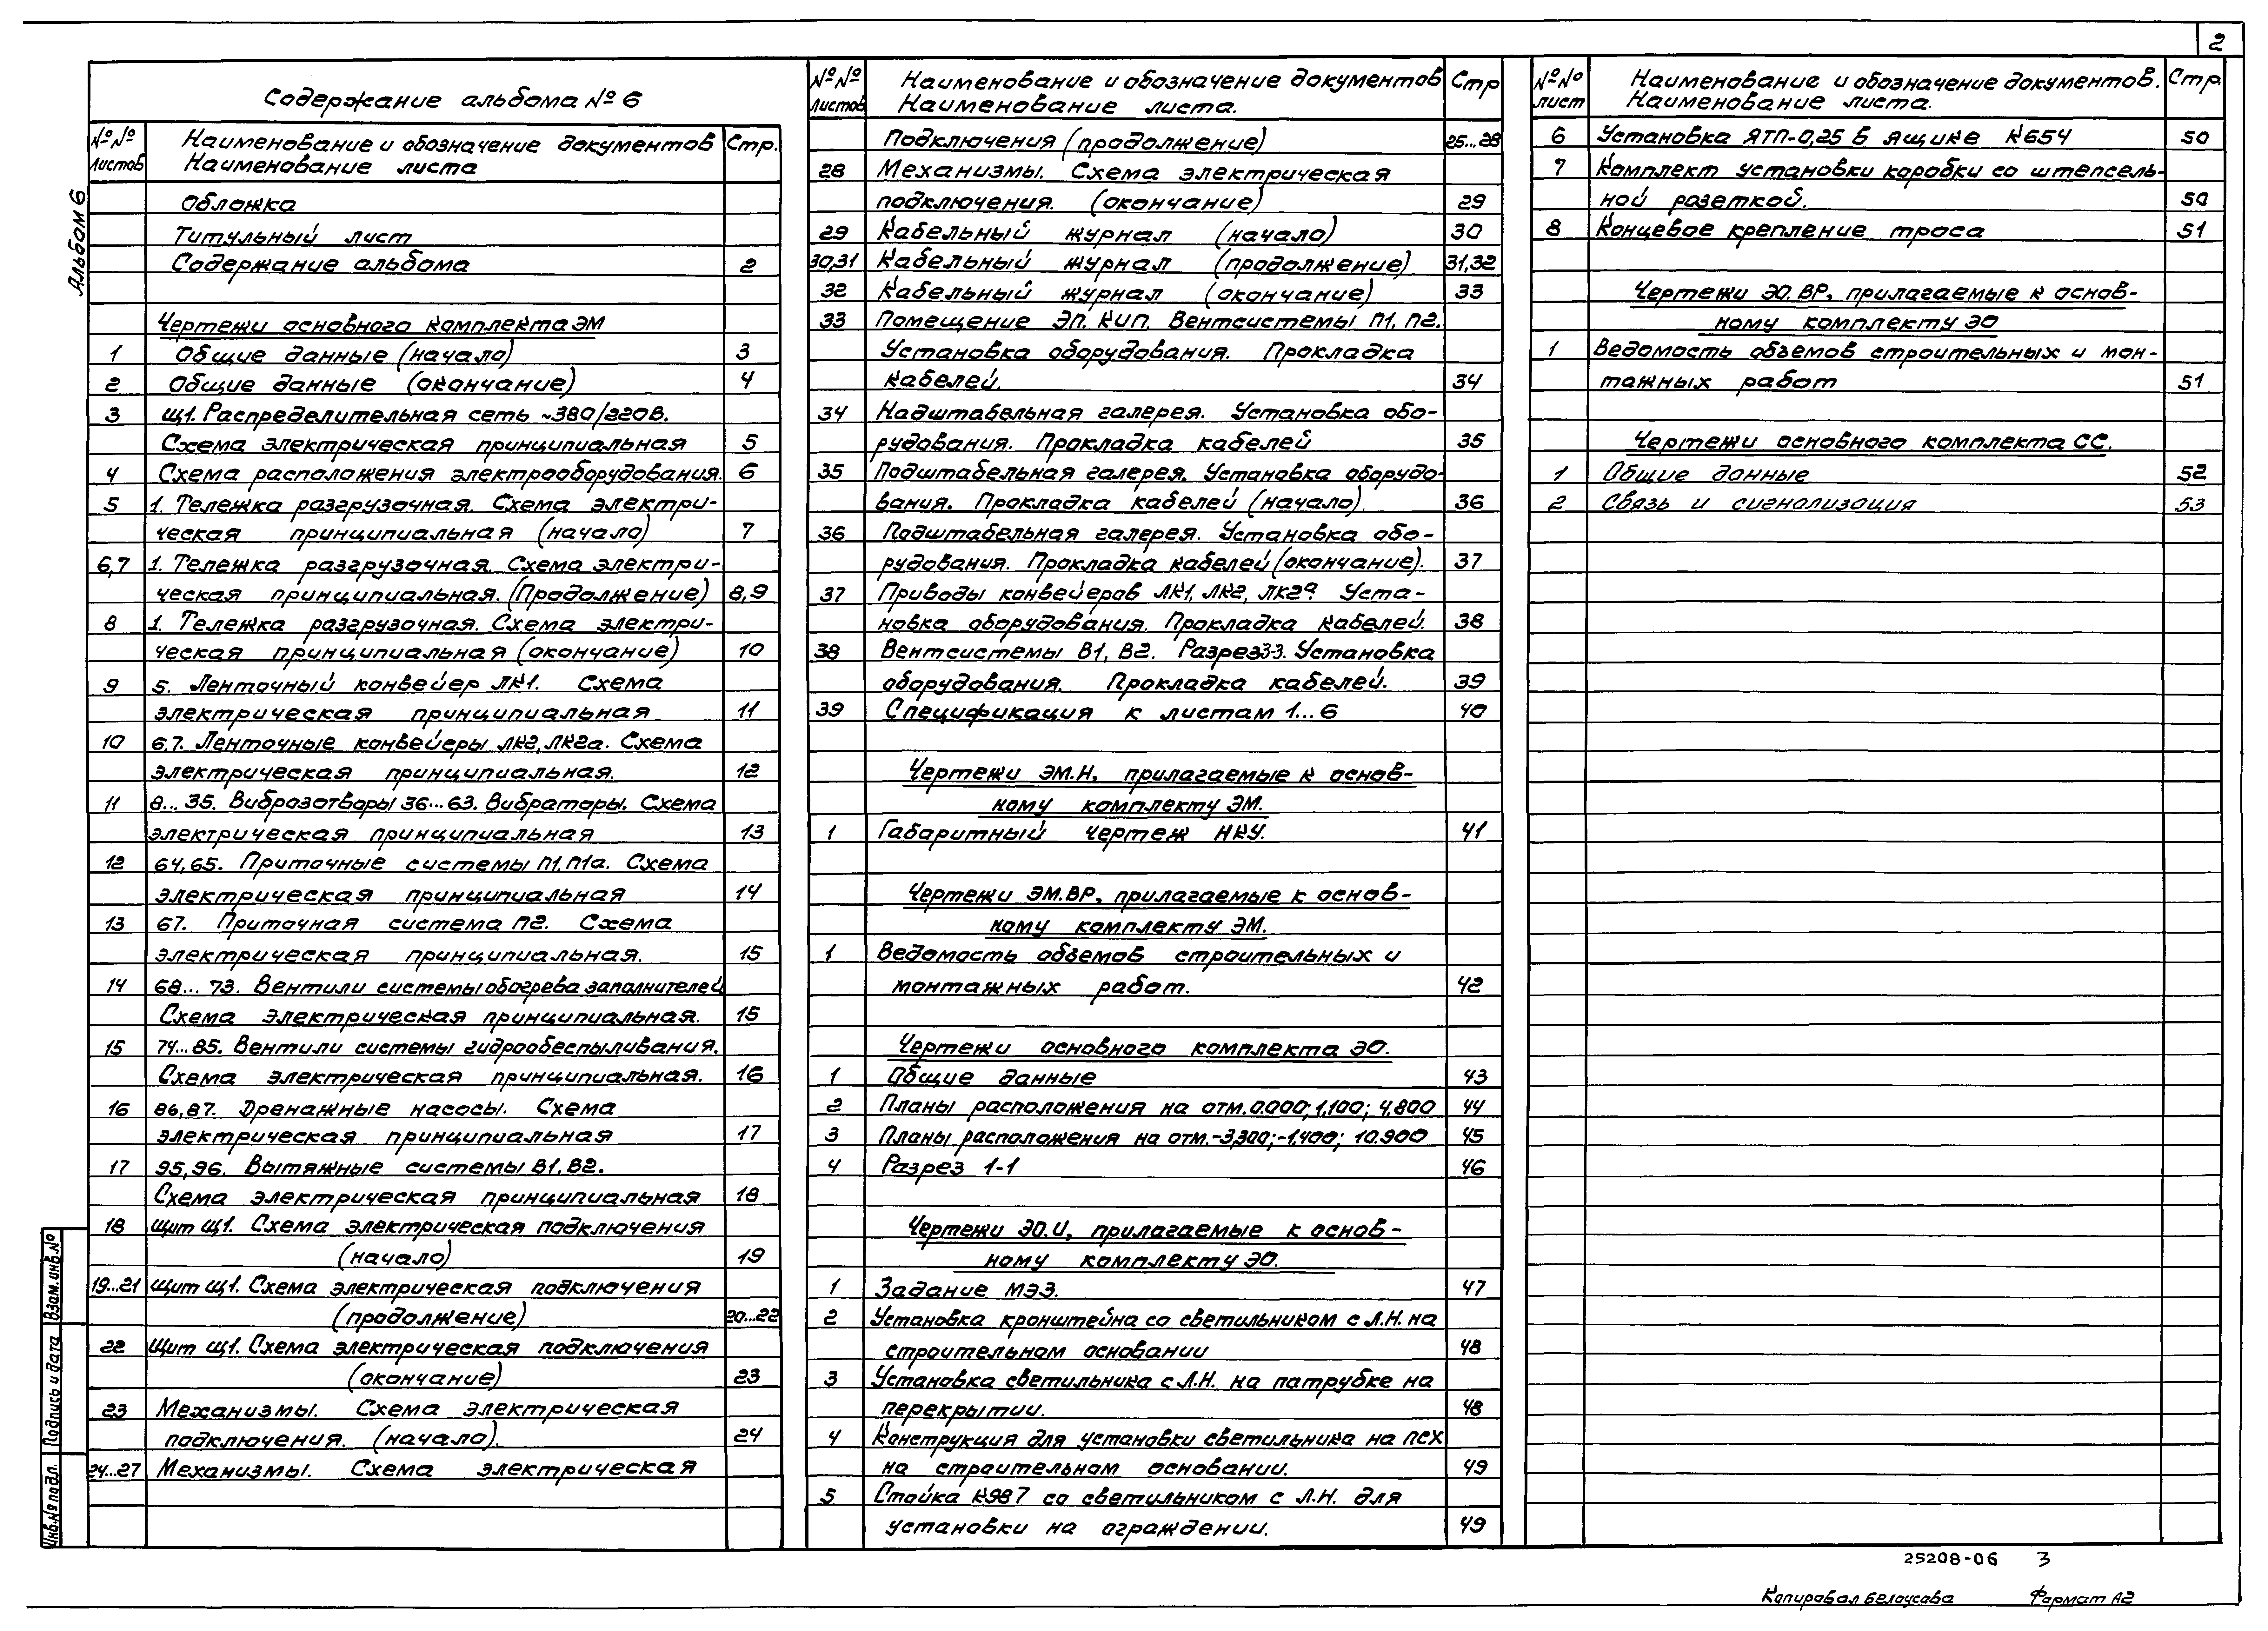 2
Альбом 6
Содержание альбома № 6
№№ листов Наименование и обозначение документов Стр.
Наименование листа
Обложка
Титульный лист
Содержание альбома 2
Чертежи основного комплекта ЭМ
1 Общие данные (начало) 3
2 Общие данные (окончание) 4
3 Щ1. Распределительная сеть ~380/220в.
Схема электрическая принципиальная 5
4 Схема расположения электрооборудования. 6
5 1. Тележка разгрузочная. Схема электри-
ческая принципиальная (начало) 7
6,7 1. Тележка разгрузочная. Схема электри-
ческая принципиальная. (Продолжение) 8,9
8 1. Тележка разгрузочная. Схема электри-
ческая принципиальная (окончание) 10
9 5. Ленточный конвейер ЛК1. Схема
электрическая принципиальная 11
10 6,7. Ленточные конвейеры ЛК2, ЛК2а. Схема
электрическая принципиальная. 12
11 8...35. Виброзатворы 36...63. Вибраторы. Схема
электрическая принципиальная 13
12 64,65. Приточные системы П1, П1а. Схема
электрическая принципиальная 14
13 67. Приточная система П2. Схема
электрическая принципиальная. 15
14 68...73. Вентили системы обогрева заполнителей
Схема электрическая принципиальная. 15
15 74...85. Вентили системы гидрообеспыливания.
Схема электрическая принципиальная. 16
16 86,87. Дренажные насосы. Схема
электрическая принципиальная 17
17 95,96. Вытяжные системы В1, В2.
Схема электрическая принципиальная 18
18 Щит Щ1. Схема электрическая подключения
(начало) 19
19...21 Щит Щ1. Схема электрическая подключения
(продолжение) 20...22
22 Щит Щ1. Схема электрическая подключения
(окончание) 23
23 Механизмы. Схема электрическая
подключения. (начало). 24
24...27 Механизмы. Схема электрическая
№№ листов Наименование и обозначение документов Стр
Наименование листа.
Подключения (продолжение) 25...28
28 Механизмы. Схема электрическая
подключения. (окончание) 29
29 Кабельный журнал (начало) 30
30,31 Кабельный журнал (продолжение) 31,32
32 Кабельный журнал (окончание) 33
33 Помещение ЭП. КИП. Вентсистемы П1, П2.
Установка оборудования. Прокладка
кабелей. 34
34 Надштабельная галерея. Установка обо-
рудования. Прокладка кабелей 35
35 Подштабельная галерея. Установка оборудо-
вания. Прокладка кабелей (начало). 36
36 Подштабельная галерея. Установка обо-
рудования. Прокладка кабелей (окончание). 37
37 Приводы конвейеров ЛК1, ЛК2, ЛК2а. Уста-
новка оборудования. Прокладка кабелей. 38
38 Вентсистемы В1, В2. Разрез 3-3. Установка
оборудования. Прокладка кабелей. 39
39 Спецификация к листам 1...6 40
Чертежи ЭМ.Н, прилагаемые к основ-
ному комплекту ЭМ.
1 Габаритный чертеж НКУ. 41
Чертежи ЭМ.ВР, прилагаемые к основ-
ному комплекту ЭМ.
1 Ведомость объемов строительных и
монтажных работ. 42
Чертежи основного комплекта ЭО.
1 Общие данные 43
2 Планы расположения на отм. 0.000; 1,100; 4,800 44
3 Планы расположения на отм. -3,300; -1,400; 10.900 45
4 Разрез 1-1 46
Чертежи ЭО.И, прилагаемые к основ-
ному комплекту ЭО.
1 Задание МЭЗ. 47
2 Установка кронштейна со светильником с Л.Н. на
строительном основании 48
3 Установка светильника с Л.Н. на патрубке на
перекрытии. 48
4 Конструкция для установки светильника на ПСХ
на строительном основании. 49
5 Стойка К987 со светильником с Л.Н. для
установки на ограждении. 49
№№ лист Наименование и обозначение документов. Стр.
Наименование листа.
6 Установка ЯТП-0,25 в ящике К654 50
7 Комплект установки коробки со штепсель-
ной розеткой. 50
8 Концевое крепление троса 51
Чертежи ЭО.ВР, прилагаемые к основ-
ному комплекту ЭО
1 Ведомость объемов строительных и мон-
тажных работ 51
Чертежи основного комплекта СС.
1 Общие данные 52
2 Связь и сигнализация 53
Взам. инв. №
Подпись и дата
Инв. № подл.
25208-06 3
Копировал Белоусова Формат А2